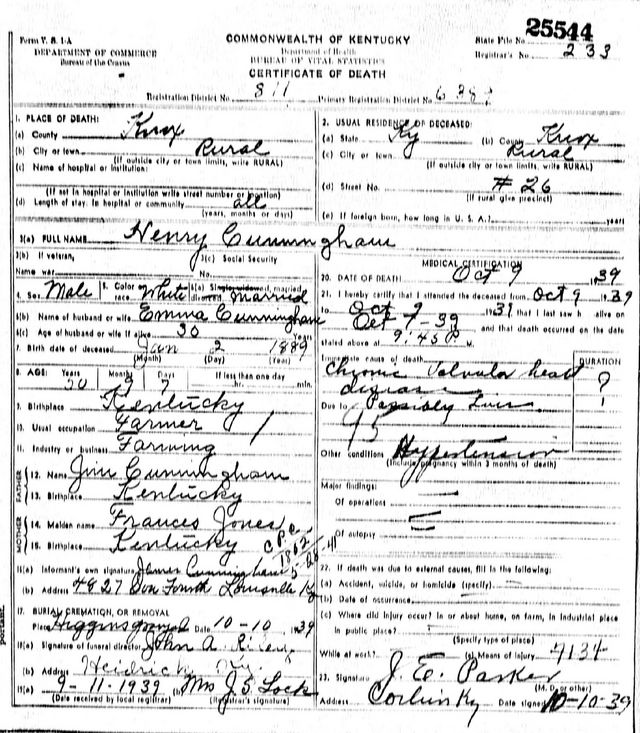 25544
Form V. S. 1-A
COMMONWEALTH OF KENTUCKY
State File No.
DEPARTMENT OF COMMERCE
Department of Health
Registrar's No. 233
Bureau of the Census
BUREAU OF VITAL STATISTICS
CERTIFICATE OF DEATH
Registration District No. 811 Primary Registration District No.
1. PLACE OF DEATH:
(a) County Knox
(b) City or town Rural
(If outside city or town limits, write RURAL)
(c) Name of hospital or institution:
(If not in hospital or institution write street number or location)
(d) Length of stay: In hospital or community all
(years, months or days)
2. USUAL RESIDENCE OF DECEASED:
(a) State Ky (b) County Knox
(c) City or town Rural
(If outside city or town limits, write RURAL)
(d) Street No. # 26
(If rural give precinct)
(e) If foreign born, how long in U. S. A.? years
3(a) FULL NAME Henry Cunningham
3(b) If veteran, 3(c) Social Security
Name war. No.
4. Sex Male 5. Color or race White 6(a) Single, widowed, married, divorced married
6(b) Name of husband or wife Emma Cunningham
6(c) Age of husband or wife if alive 30
7. Birth date of deceased Jan 2 1889
(Month) (Day) (Year)
8. AGE: Years Months Days If less than one day
50 9 7 hr. min.
9. Birthplace Kentucky
10. Usual occupation Farmer
11. Industry or business Farming
FATHER
12. Name Jim Cunningham
13. Birthplace Kentucky
MOTHER
14. Maiden name Frances Jones
15. Birthplace Kentucky
16(a) Informant's own signature James Cunningham
(b) Address 4827 Sou Fourth Louisville Ky
17. BURIAL, CREMATION, OR REMOVAL
Place Date 10-10 1939
18(a) Signature of funeral director John A. Riley
(b) Address Heidrick, Ky.
19(a) 9-11-1939 (b) Mrs J. S. Lock
(Date received by local registrar) (Registrar's signature)
MEDICAL CERTIFICATION
20. DATE OF DEATH Oct 9 1939
21. I hereby certify that I attended the deceased from Oct 9 1939
to Oct 9 1939 that I last saw h alive on
Oct 9-39 and that death occurred on the date
stated above at 9:45 P. M.
Immediate cause of death DURATION
Chronic Valvular heart
disease ?
Due to Possibly Lues
95
Other conditions Hypertension
(Include pregnancy within 3 months of death)
Major findings:
Of operations
Of autopsy
22. If death was due to external causes, fill in the following:
(a) Accident, suicide, or homicide (specify)
(b) Date of occurrence
(c) Where did injury occur? In or about home, on farm, in industrial place
in public place?
(Specify type of place)
While at work? (e) Means of injury 4134
23. Signature J. E. Parker
(M. D. or other)
Address Corbin Ky Date signed 10-10-39